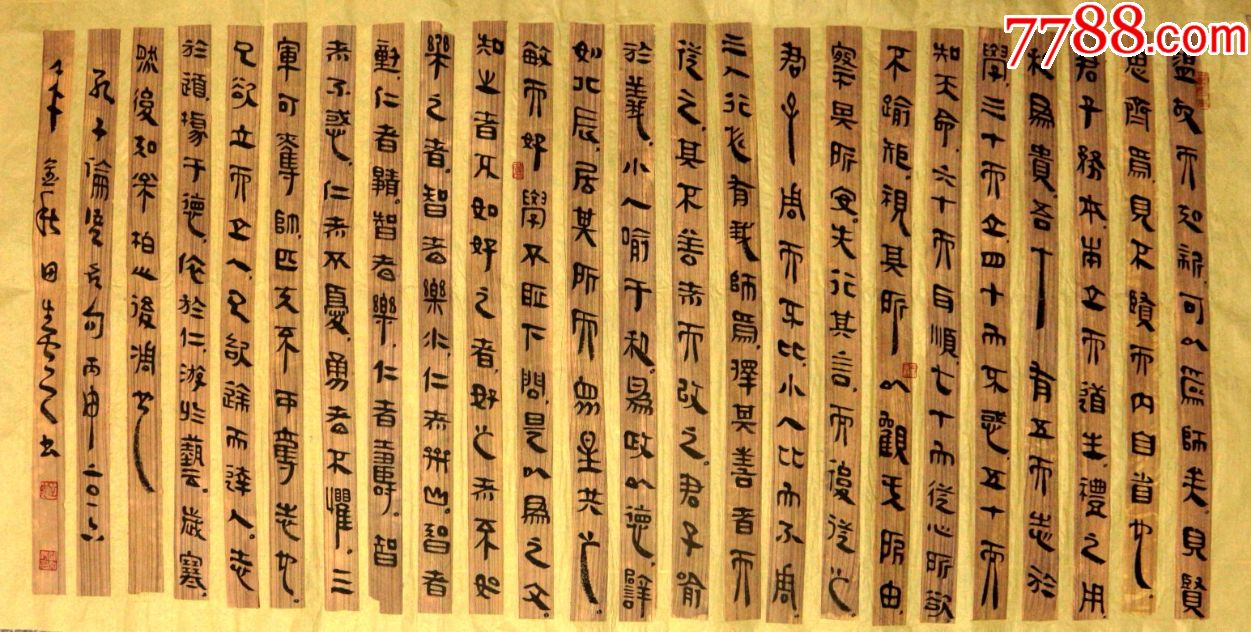 7788.com
溫故而知新,可以為師矣。見賢
思齊焉,見不賢而內自省也。
君子務本,本立而道生。禮之用
和為貴。吾十有五而志於
學,三十而立,四十而不惑,五十而
知天命,六十而耳順,七十而從心所欲
不踰矩。視其所以,觀其所由,
察其所安。先行其言,而後從之
君子周而不比,小人比而不周。
三人行必有我師焉,擇其善者而
從之,其不善者而改之。君子喻
於義,小人喻于利。為政以德,譬
如北辰,居其所而眾星共之。
敏而好學,不恥下問,是以為之文。
知之者不如好之者,好之者不如
樂之者。智者樂水,仁者樂山。智者
動,仁者靜。智者樂,仁者壽。智
者不惑,仁者不憂,勇者不懼。三
軍可奪帥,匹夫不可奪志也。
己欲立而立人,己欲達而達人。志
於道,據于德,依於仁,游於藝。歲寒
然後知松柏之後凋也
孔子論語名句 丙申二〇一六
年 田 書